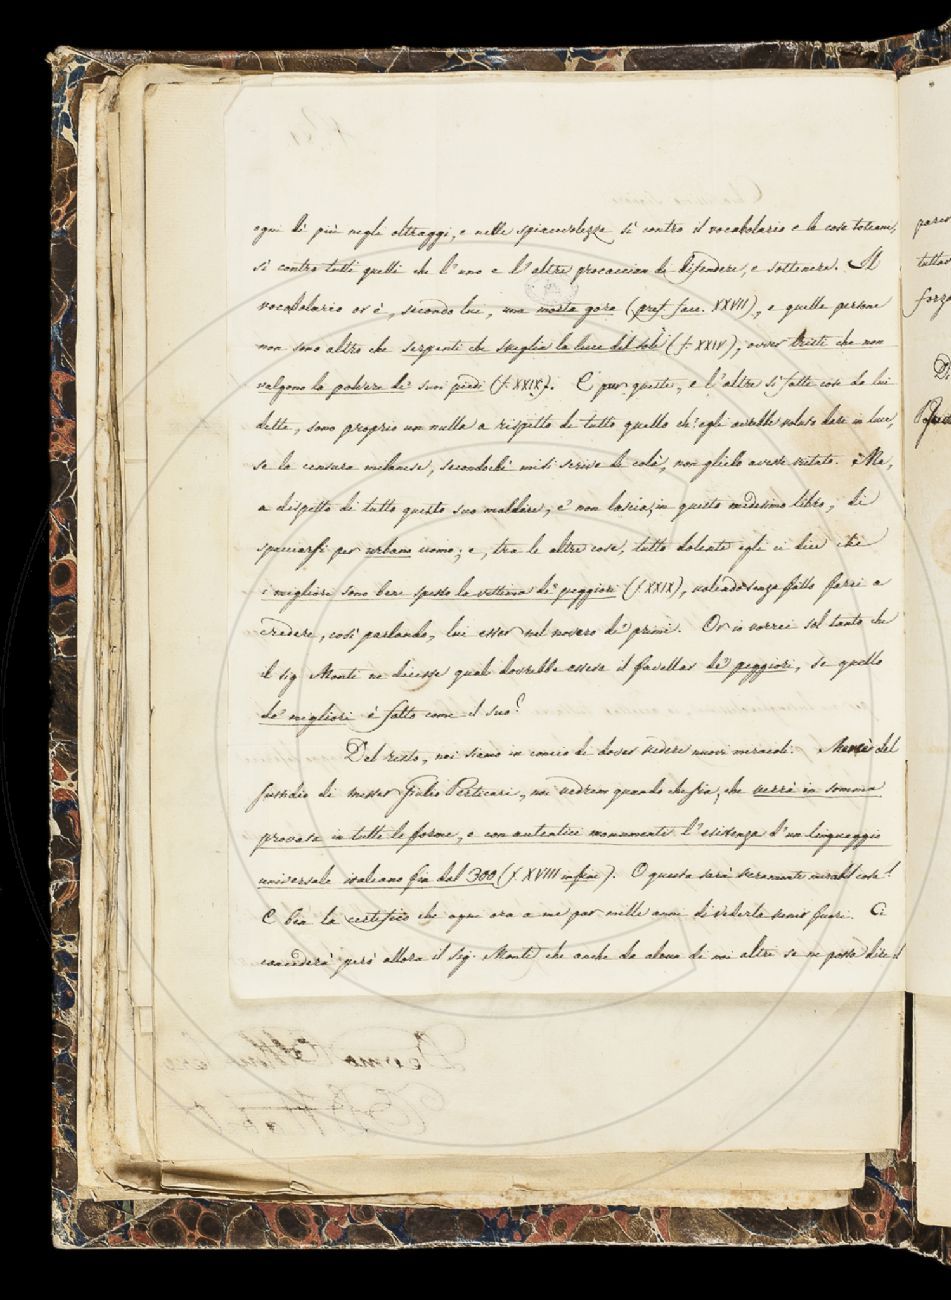 ogni dì più negli oltraggi, e nelle spiacevolezze sì contro il vocabolario e le cose toscane,
sì contro tutti quelli che l'uno e l'altre procaccian di difendere, e sostenere. Il
vocabolario or è, secondo lui, una morta gora (pref. facc. XXVII), e quelle persone
non sono altro che serpenti che sveglia la luce del sole (f. XXIV); ovver tristi che non
valgono la polvere de' suoi piedi (f. XXIX). E pur queste, e l'altre sì fatte cose da lui
dette, sono proprio un nulla a rispetto di tutto quello ch'egli avrebbe voluto dare in luce,
se la censura milanese, secondochè mi si scrive di colà, non glielo avesse vietato. Ma,
a dispetto di tutto questo suo maldire, e' non lascia, in questo medesimo libro, di
spacciarsi per urbano uomo; e, tra le altre cose, tutto dolente egli ci dice che
i migliori sono bene spesso la vittima de' peggiori (f. XXIX), volendo senza fallo farci a
credere, così parlando, lui esser nel novero de' primi. Or io vorrei sol tanto che
il sig. Monti ne dicesse qual dovrebbe essere il favellar de' peggiori, se quello
de' migliori è fatto come il suo?
Del resto, noi siamo in concio di dover vedere nuovi miracoli. Mercè del
fustidio di messer Giulio Perticari, noi vedrem quando che sia, che verrà in somma
provata in tutte le forme, e con autentici monumenti l'esistenza d'un linguaggio
universale italiano fin dal 300 (f. XVIII in fine). O questa sarà veramente mirabil cosa!
E ben la certifico che ogni ora a me par mille anni di vederla venir fuori. Ci
concederà però allora il sig. Monti che anche da alcun di noi altri se ne possa dire il